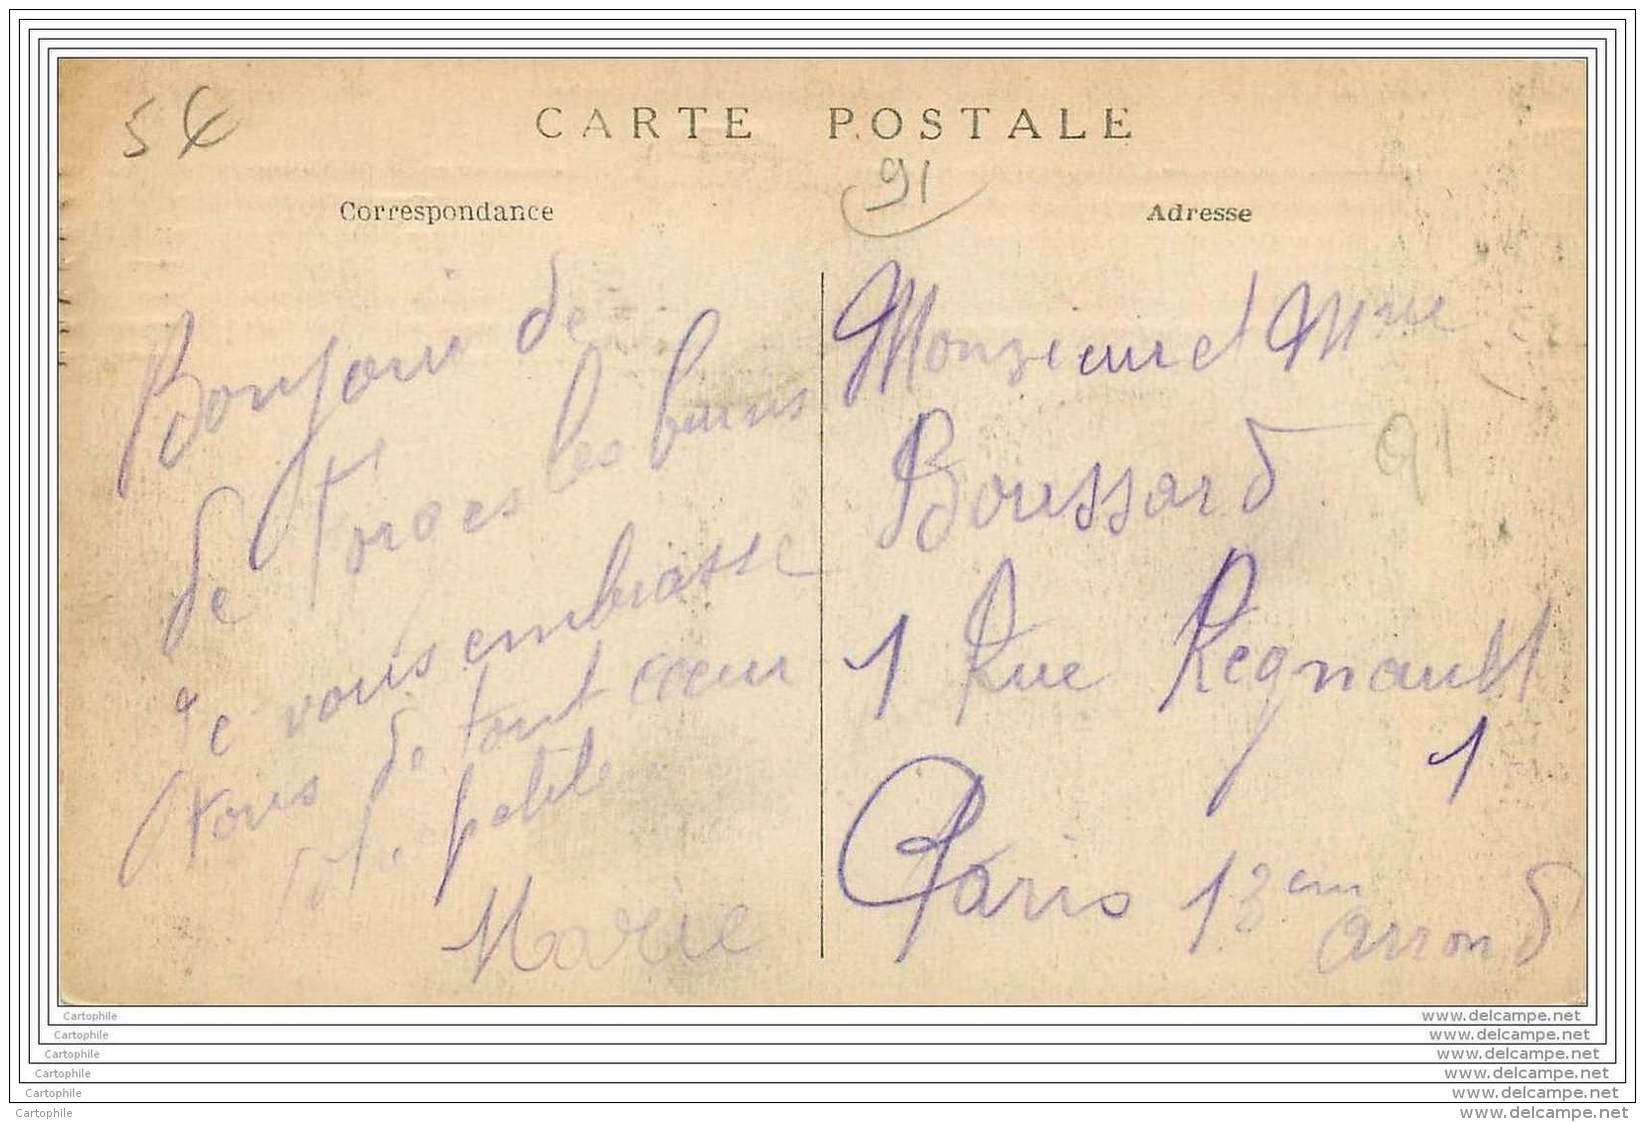 5€
CARTE POSTALE
91
Correspondance
Adresse
Bonjour de
de Forges les bains
je vous embrasse
tous de tout cœur
petite
Marie
Monsieur et Mme
Boussard
91
1 Rue Regnault
1
Paris 13em
arrond
Cartophile
www.delcampe.net
Cartophile
www.delcampe.net
Cartophile
www.delcampe.net
Cartophile
www.delcampe.net
Cartophile
www.delcampe.net
Cartophile
www.delcampe.net